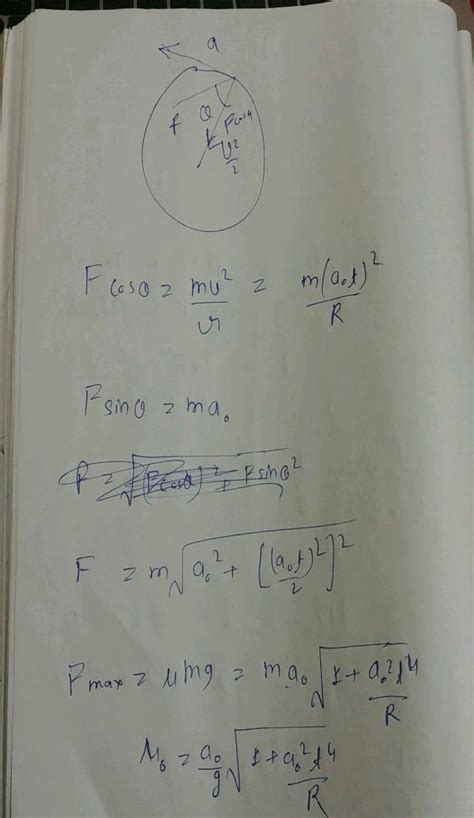 a
F
θ
F cosθ
v²/2
F cosθ = mv²/r = m(a₀t)²/R
F sinθ = ma₀
F = √(F cosθ)² + F sinθ²
F = m√(a₀² + [(a₀t)²/2]²)
F max = μmg = ma₀√(1 + a₀²t⁴/R)
μ₀ = a₀/g √(1 + a₀²t⁴/R)